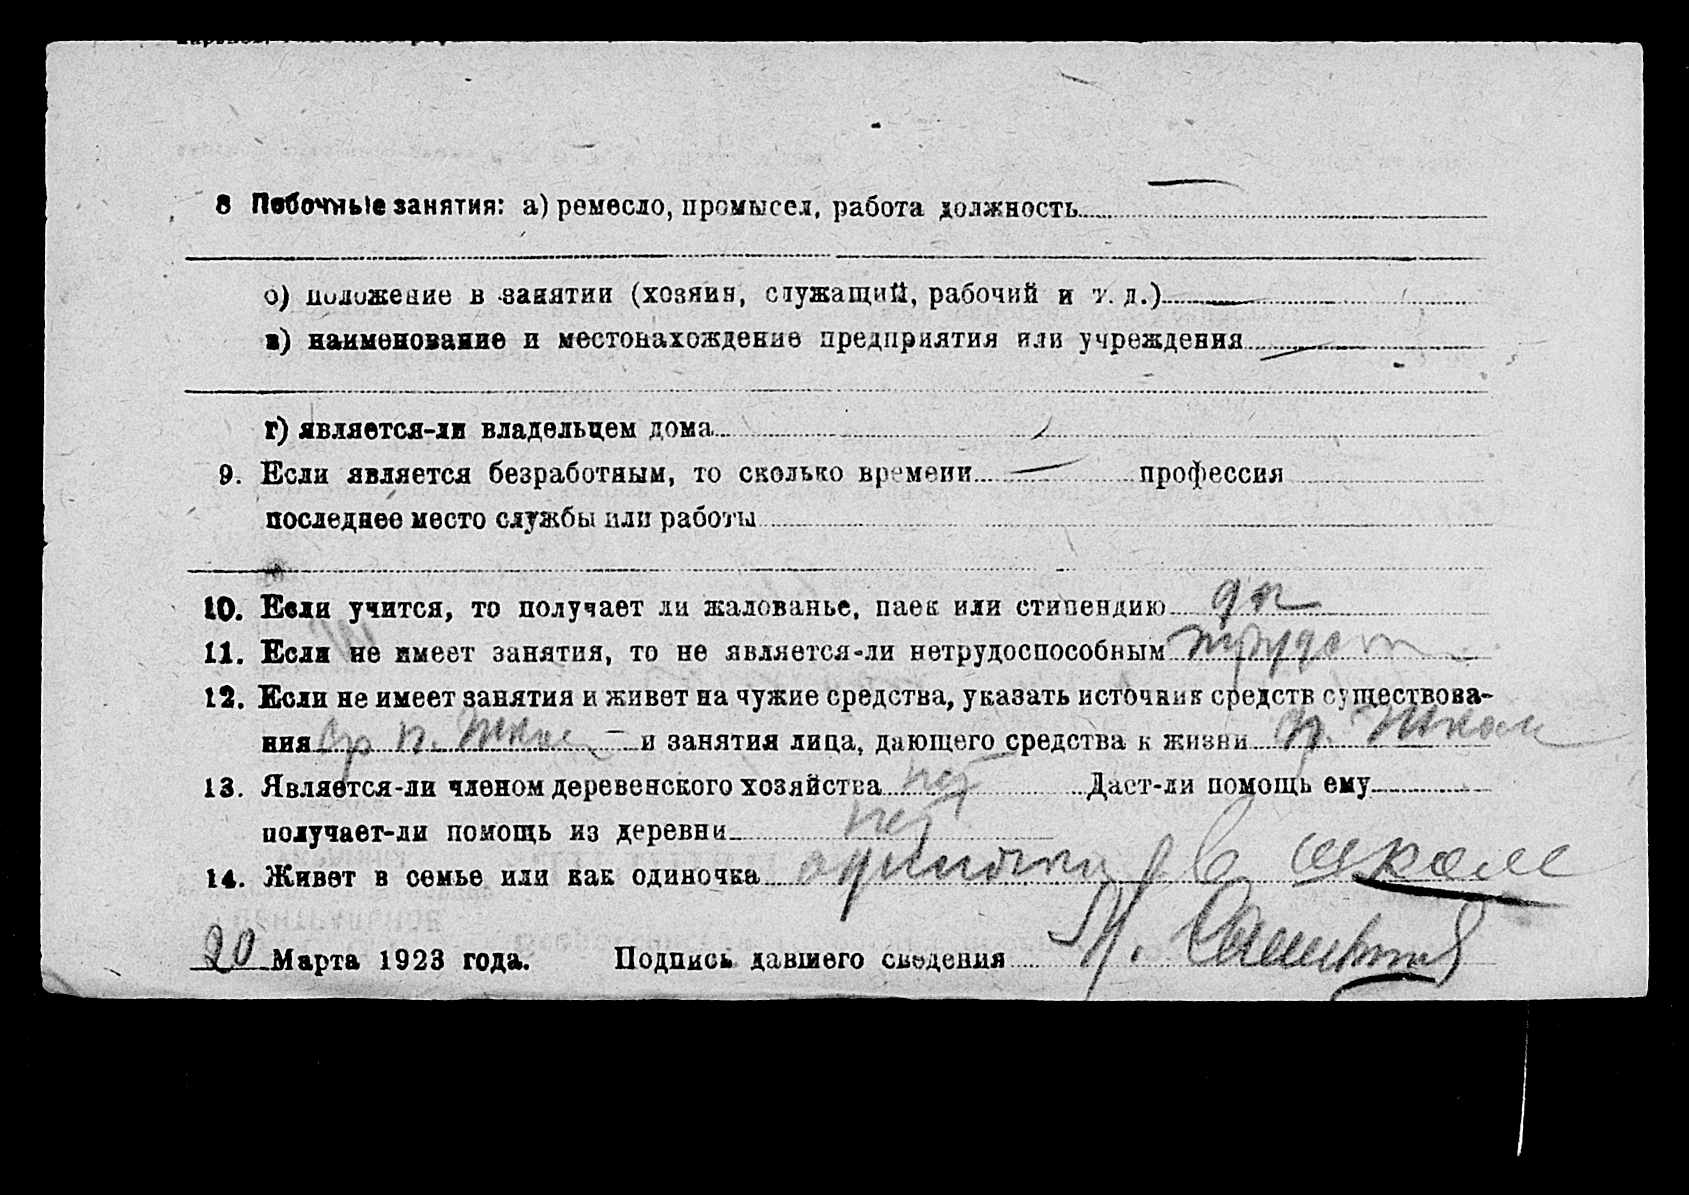 8 Побочные занятия: а) ремесло, промысел, работа должность
б) положение в занятии (хозяин, служащий, рабочий и т. д.)
в) наименование и местонахождение предприятия или учреждения
г) является-ли владельцем дома
9. Если является безработным, то сколько времени профессия
последнее место службы или работы
10. Если учится, то получает ли жалованье, паек или стипендию да
11. Если не имеет занятия, то не является-ли нетрудоспособным трудосп
12. Если не имеет занятия и живет на чужие средства, указать источник средств существова-
ния и занятия лица, дающего средства к жизни
13. Является-ли членом деревенского хозяйства нет Дает-ли помощь ему
получает-ли помощь из деревни нет
14. Живет в семье или как одиночка одиночка в школе
20 Марта 1923 года. Подпись давшего сведения